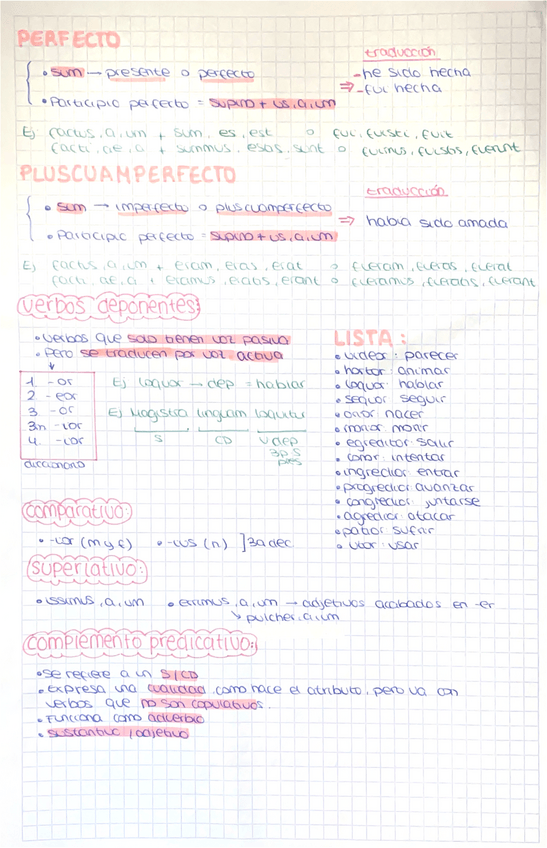 PERFECTO
traducción
• sum → presente o perfecto
- he sido hecha
• Participio perfecto = supino + us, a, um
⇒ - fui hecha
Ej factus, a, um + sum, es, est o fui, fuisti, fuit
facti, ae, a + summus, estis, sunt o fuimus, fuistis, fuerunt
PLUSCUAMPERFECTO
traducción
• sum → imperfecto o pluscuamperfecto
⇒ había sido amada
• Participio perfecto = supino + us, a, um
Ej factus, a, um + eram, eras, erat o fueram, fueras, fuerat
facti, ae, a + eramus, eratis, erant o fueramus, fueratis, fuerant
verbos deponentes:
• verbos que solo tienen voz pasiva
• Pero se traducen por voz activa
1. -or
2 -eor
3 -or
3n -ior
4. -ior
diccionario
Ej loquor → dep = hablar
Ej Magistra linguam loquitur
S CD V dep
3p S
pres
LISTA:
• videor: parecer
• hortor: animar
• loquor: hablar
• sequor: seguir
• orior: nacer
• morior: morir
• egreditor: salir
• conor: intentar
• ingredior: entrar
• progredior: avanzar
• congredior: juntarse
• agredior: atacar
• patior: sufrir
• utor: usar
comparativo:
• -ior (m y f) • -ius (n) ] 3a dec
superlativo:
• issimus, a, um • errimus, a, um → adjetivos acabados en -er
↳ pulcher, a, um
complemento predicativo:
• Se refiere a un S/CD
• Expresa una cualidad, como hace el atributo, pero va con
verbos que no son copulativos.
• Funciona como adverbio
• Sustantivo / adjetivo